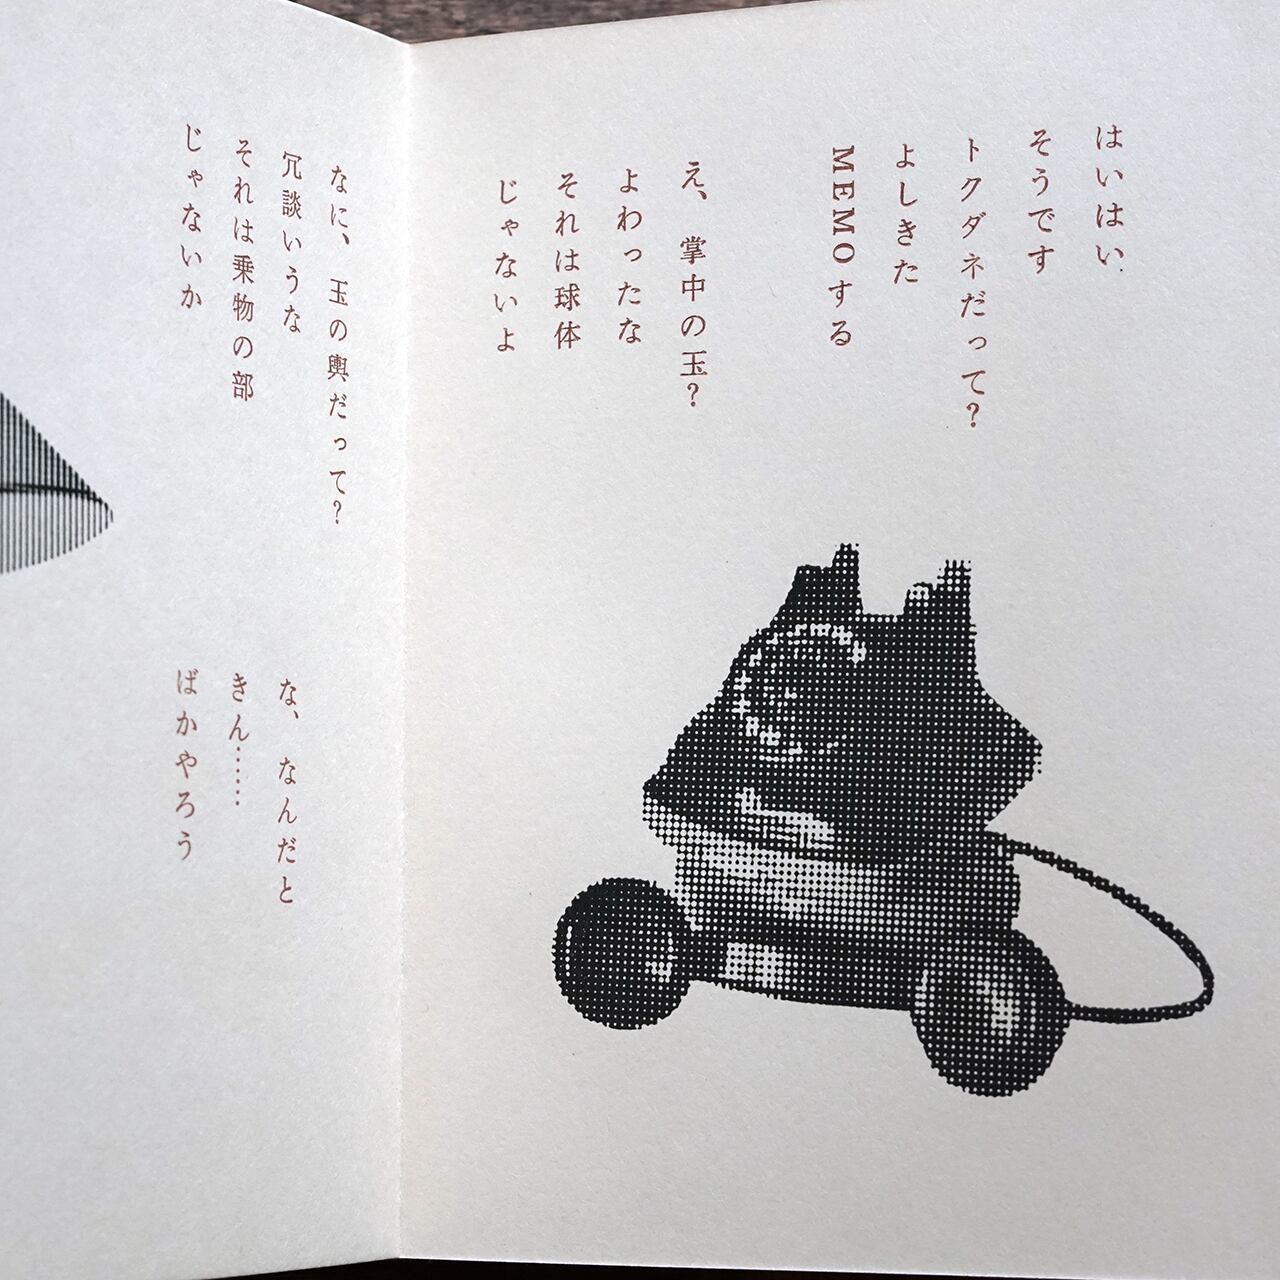 はいはい
そうです
トクダネだって?
よしきた
MEMOする
え、掌中の玉?
よわったな
それは球体
じゃないよ
なに、玉の輿だって?
冗談いうな
それは乗物の部
じゃないか
な、なんだと
きん……
ばかやろう